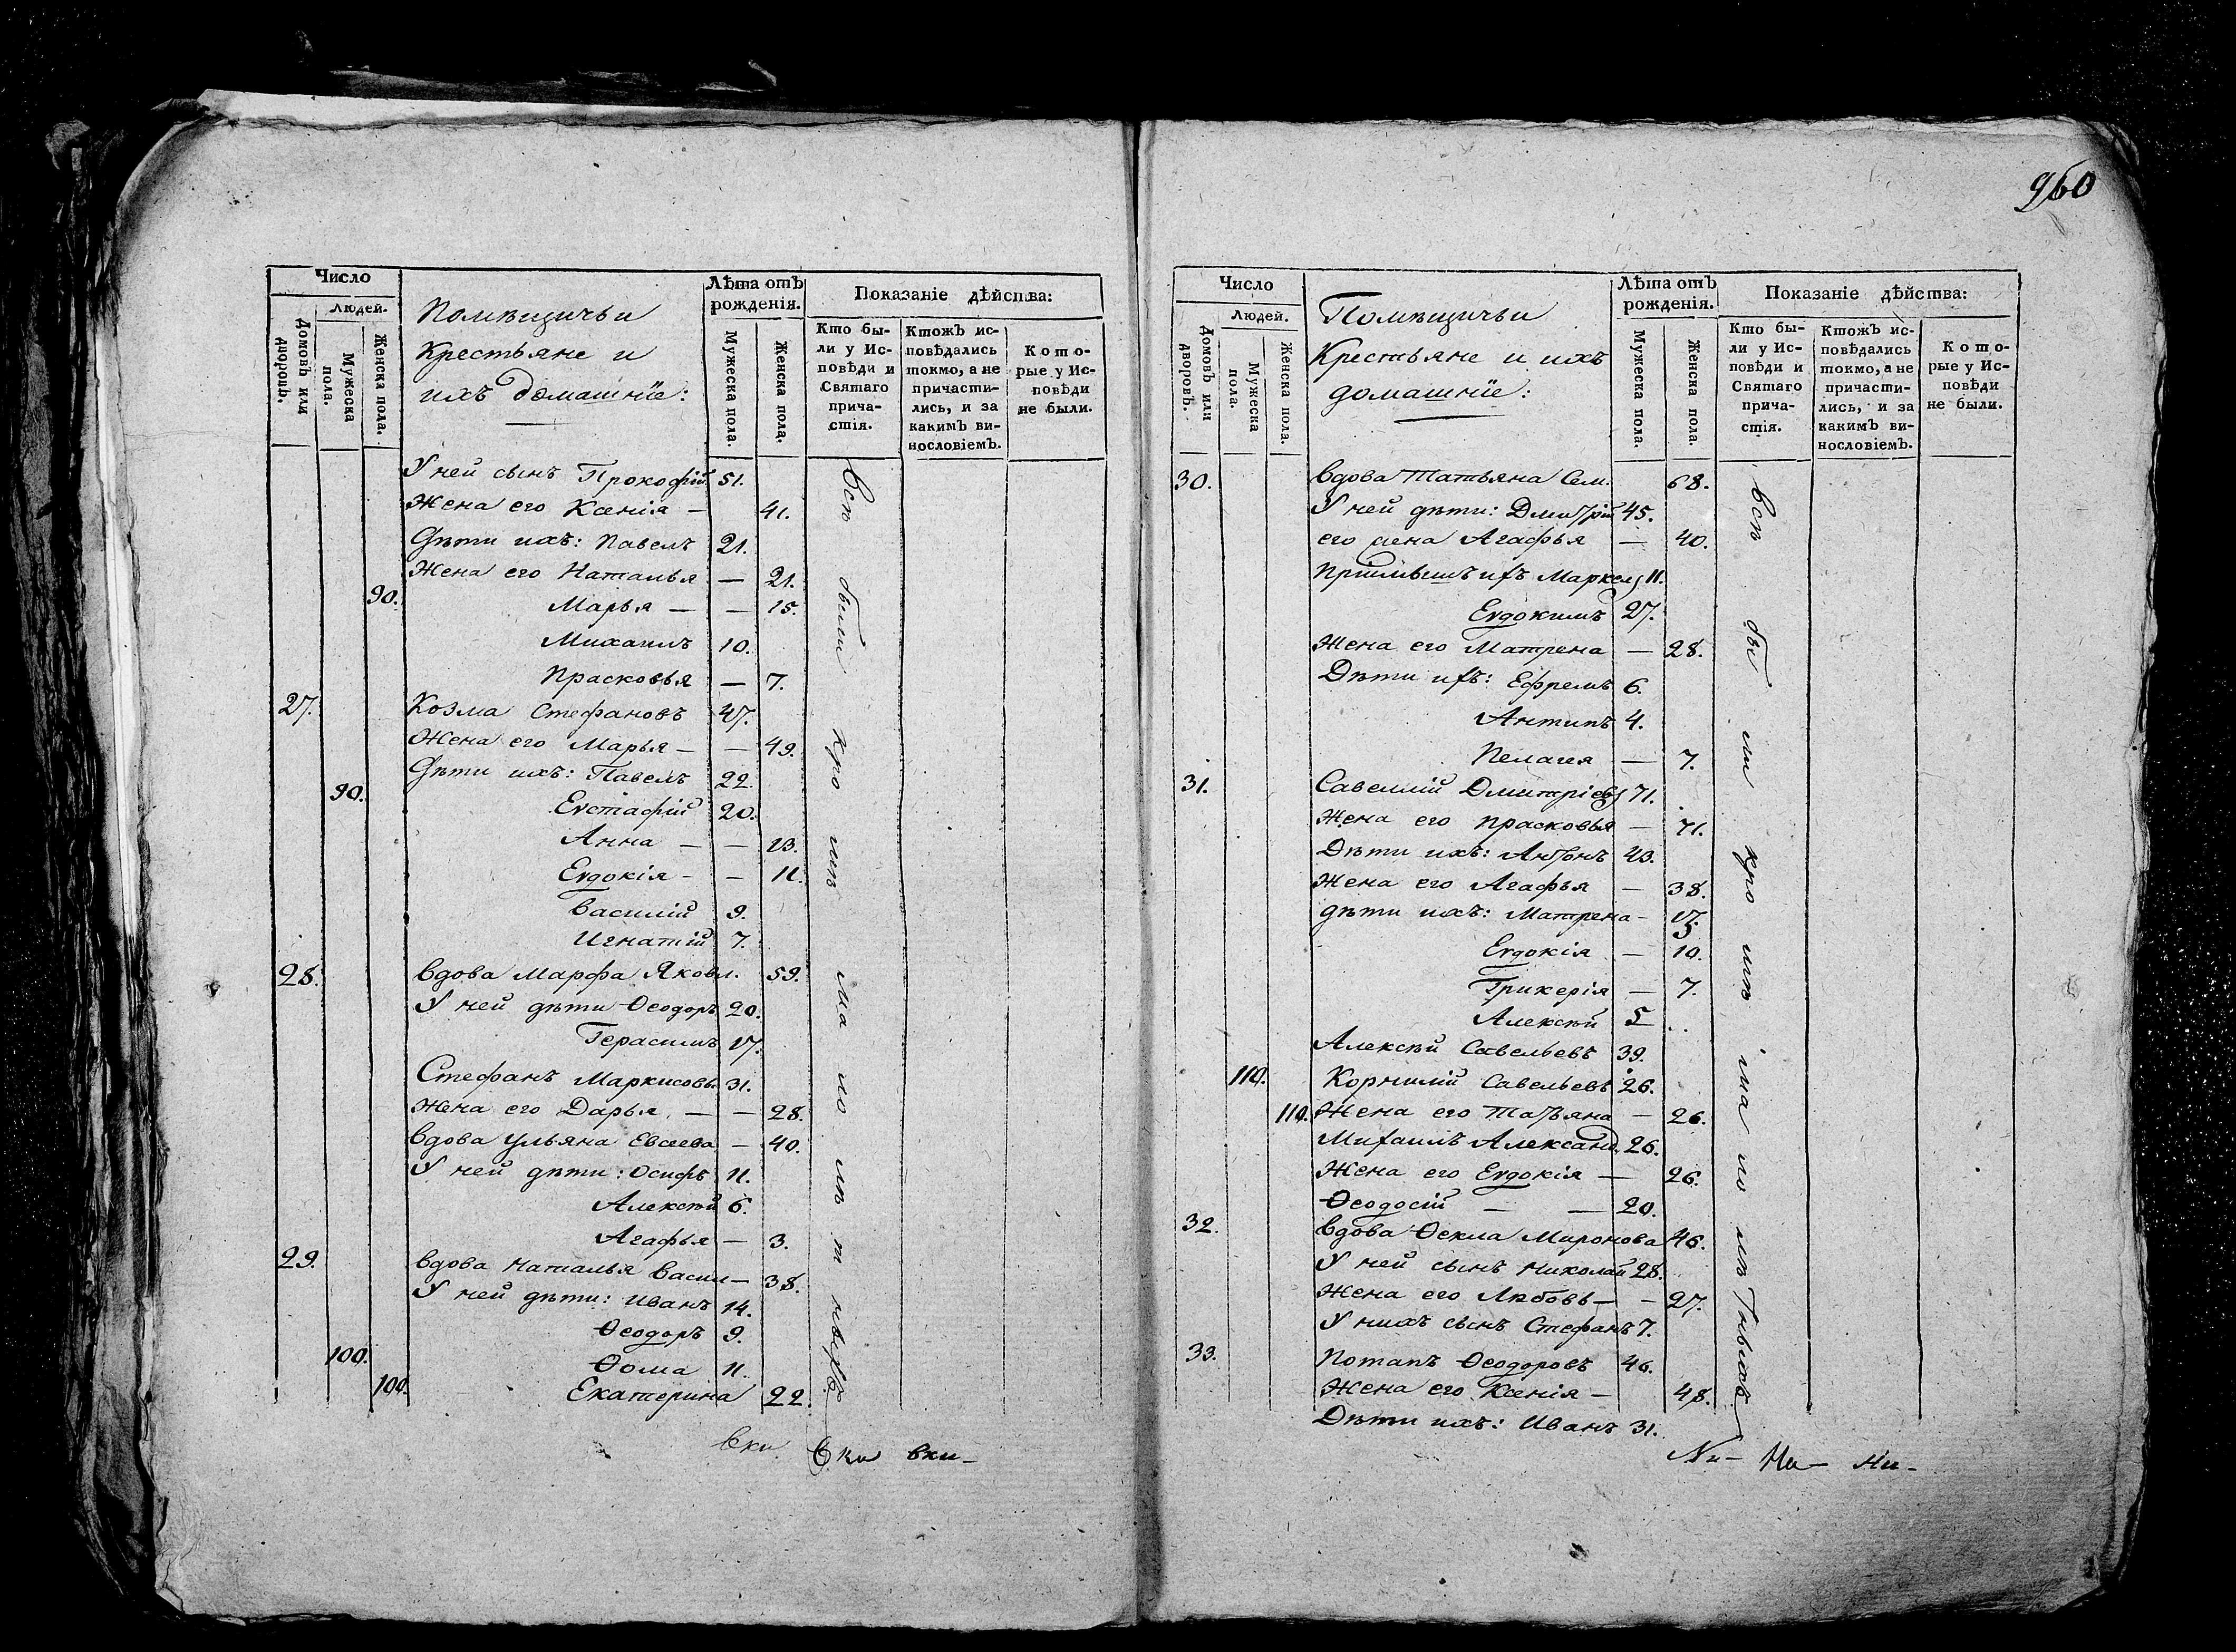 960
Число
Людей.
Домовъ или дворовъ.
Мужеска пола.
Женска пола.
Помѣщичьи
Крестьяне и
ихъ домашніе:
Лѣта отъ рожденія.
Мужеска пола.
Женска пола.
Показаніе дѣйства:
Кто бы-
ли у Ис-
повѣди и
Святаго
прича-
стія.
Ктожъ ис-
повѣдались
токмо, а не
причасти-
лись, и за
какимъ ви-
нословіемъ.
Кото-
рые у Ис-
повѣди
не были.
У ней сынъ Прокофій 51.
Жена его Ксенія — 41.
Дѣти ихъ: Павелъ 21.
Жена его Наталья — 21.
90. Марья — — 15.
Михаилъ 10.
Прасковья — 7.
27. Козма Стефановъ 47.
Жена его Марья — — 49.
Дѣти ихъ: Павелъ 22.
90. Евстафій 20.
Анна — — 13.
Евдокія — — 11.
Василій 9.
Игнатій 7.
28. Вдова Марфа Яковл. 59.
У ней дѣти Ѳеодоръ 20.
Герасимъ 17.
Стефанъ Маркисовъ. 31.
Жена его Дарья — — 28.
Вдова Ульяна Евсеева — 40.
У ней дѣти: Осифъ 11.
Алексѣй 6.
Агафья — 3.
29. Вдова Наталья Васил — 38.
У ней дѣти: Иванъ 14.
Ѳеодоръ 9.
100. Ѳома 11.
100. Екатерина 22.
Всѣ были кромѣ малолѣт
Вки Вки вки —
Число
Людей.
Домовъ или дворовъ.
Мужеска пола.
Женска пола.
Помѣщичьи
Крестьяне и ихъ
домашніе:
Лѣта отъ рожденія.
Мужеска пола.
Женска пола.
Показаніе дѣйства:
Кто бы-
ли у Ис-
повѣди и
Святаго
прича-
стія.
Ктожъ ис-
повѣдались
токмо, а не
причасти-
лись, и за
какимъ ви-
нословіемъ.
Кото-
рые у Ис-
повѣди
не были.
30. Вдова Татьяна Сем. 68.
У ней дѣти: Дмитрій 45.
его жена Агафья — 40.
Маркел 11.
Евдокимъ 27.
Жена его Матрена — 28.
Дѣти ихъ: Ефремъ 6.
Антипъ 4.
Пелагея — 7.
31. Савелий Дмитріев 71.
Жена его Прасковья — 71.
Дѣти ихъ: Антонъ 43.
Жена его Агафья — 38.
дѣти ихъ: Матрена — 17.
Евдокія — 10.
Гликерія — 7.
Алексѣй 5
Алексѣй Савельевъ 39.
110. Корнилій Савельевъ 26.
110. Жена его Татьяна — 26.
Михаилъ Александ. 26.
Жена его Евдокія — 26.
Ѳеодосій — — 20.
32. Вдова Ѳекла Миронова 46.
У ней сынъ Николай 28.
Жена его Любовь — — 27.
У нихъ сынъ Стефанъ 7.
33. Потапъ Ѳеодоровъ 46.
Жена его Ксенія — 48.
Дѣти ихъ: Иванъ 31.
Всѣ были кромѣ малолѣтныхъ
Ни — На — Ни —